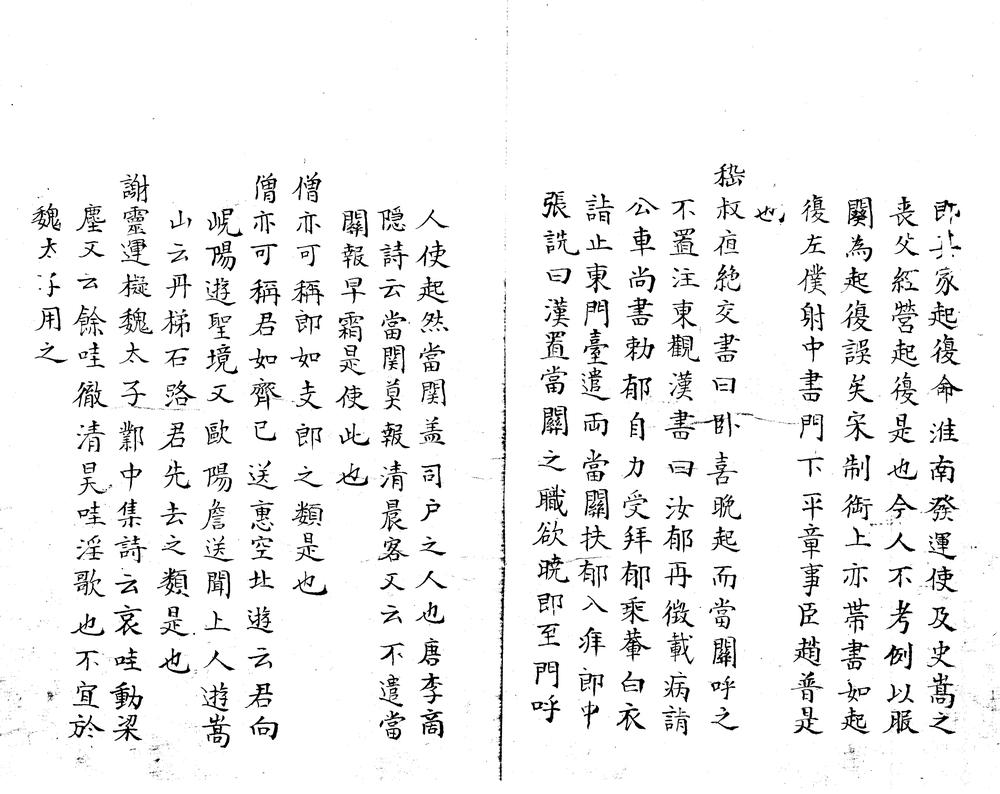 即其家起復命淮南發運使及史嵩之
喪父經營起復是也今人不考例以服
闋為起復誤矣宋制銜上亦帶書如起
復左僕射中書門下平章事臣趙普是
也
嵇叔夜絶交書曰卧喜晚起而當關呼之
不置注東觀漢書曰汝郁再徵載病詣
公車尚書勅郁自力受拜郁乘輂白衣
詣止東門臺遣両當關扶郁入拜郎中
張詵曰漢置當關之職欲曉即至門呼
人使起然當関盖司户之人也唐李商
隠詩云當関莫報清晨客又云不遣當
關報早霜是使此也
僧亦可稱郎如支郎之類是也
僧亦可稱君如齊已送惠空北遊云君向
峴陽遊聖境又歐陽詹送聞上人遊嵩
山云丹梯石路君先去之類是也
謝靈運擬魏太子鄴中集詩云哀哇動梁
塵又云餘哇徹清昊哇淫歌也不宜於
魏太子用之